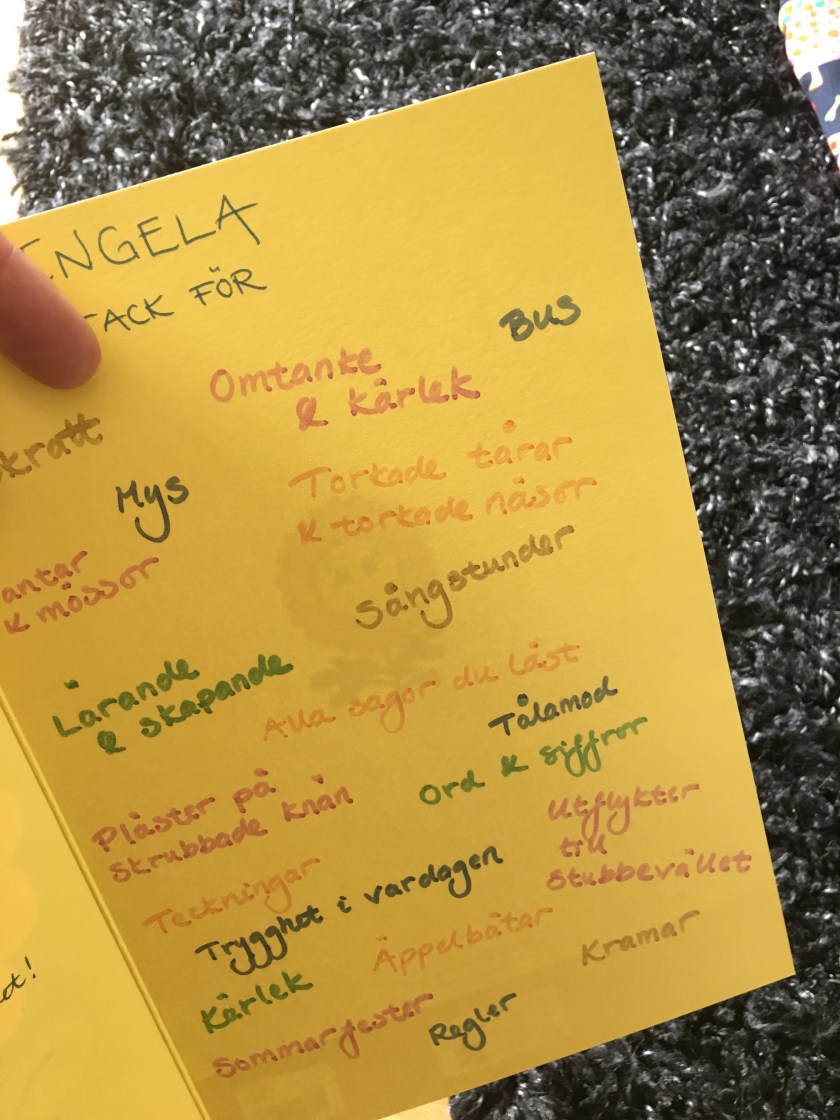 ENGELA
TACK FÖR
BUS
Omtanke
& kärlek
skratt
Mys
Torkade tårar
& torkade näsor
antar
& mössor
Sångstunder
Lärande
& skapande
Alla sagor du läst
Tålamod
Ord & siffror
Plåster på
skrubbade knän
Utflykter
till
Stubbevallet
Teckningar
Trygghet i vardagen
Äppelbåtar
Kramar
Kärlek
Sommarfester
Regler